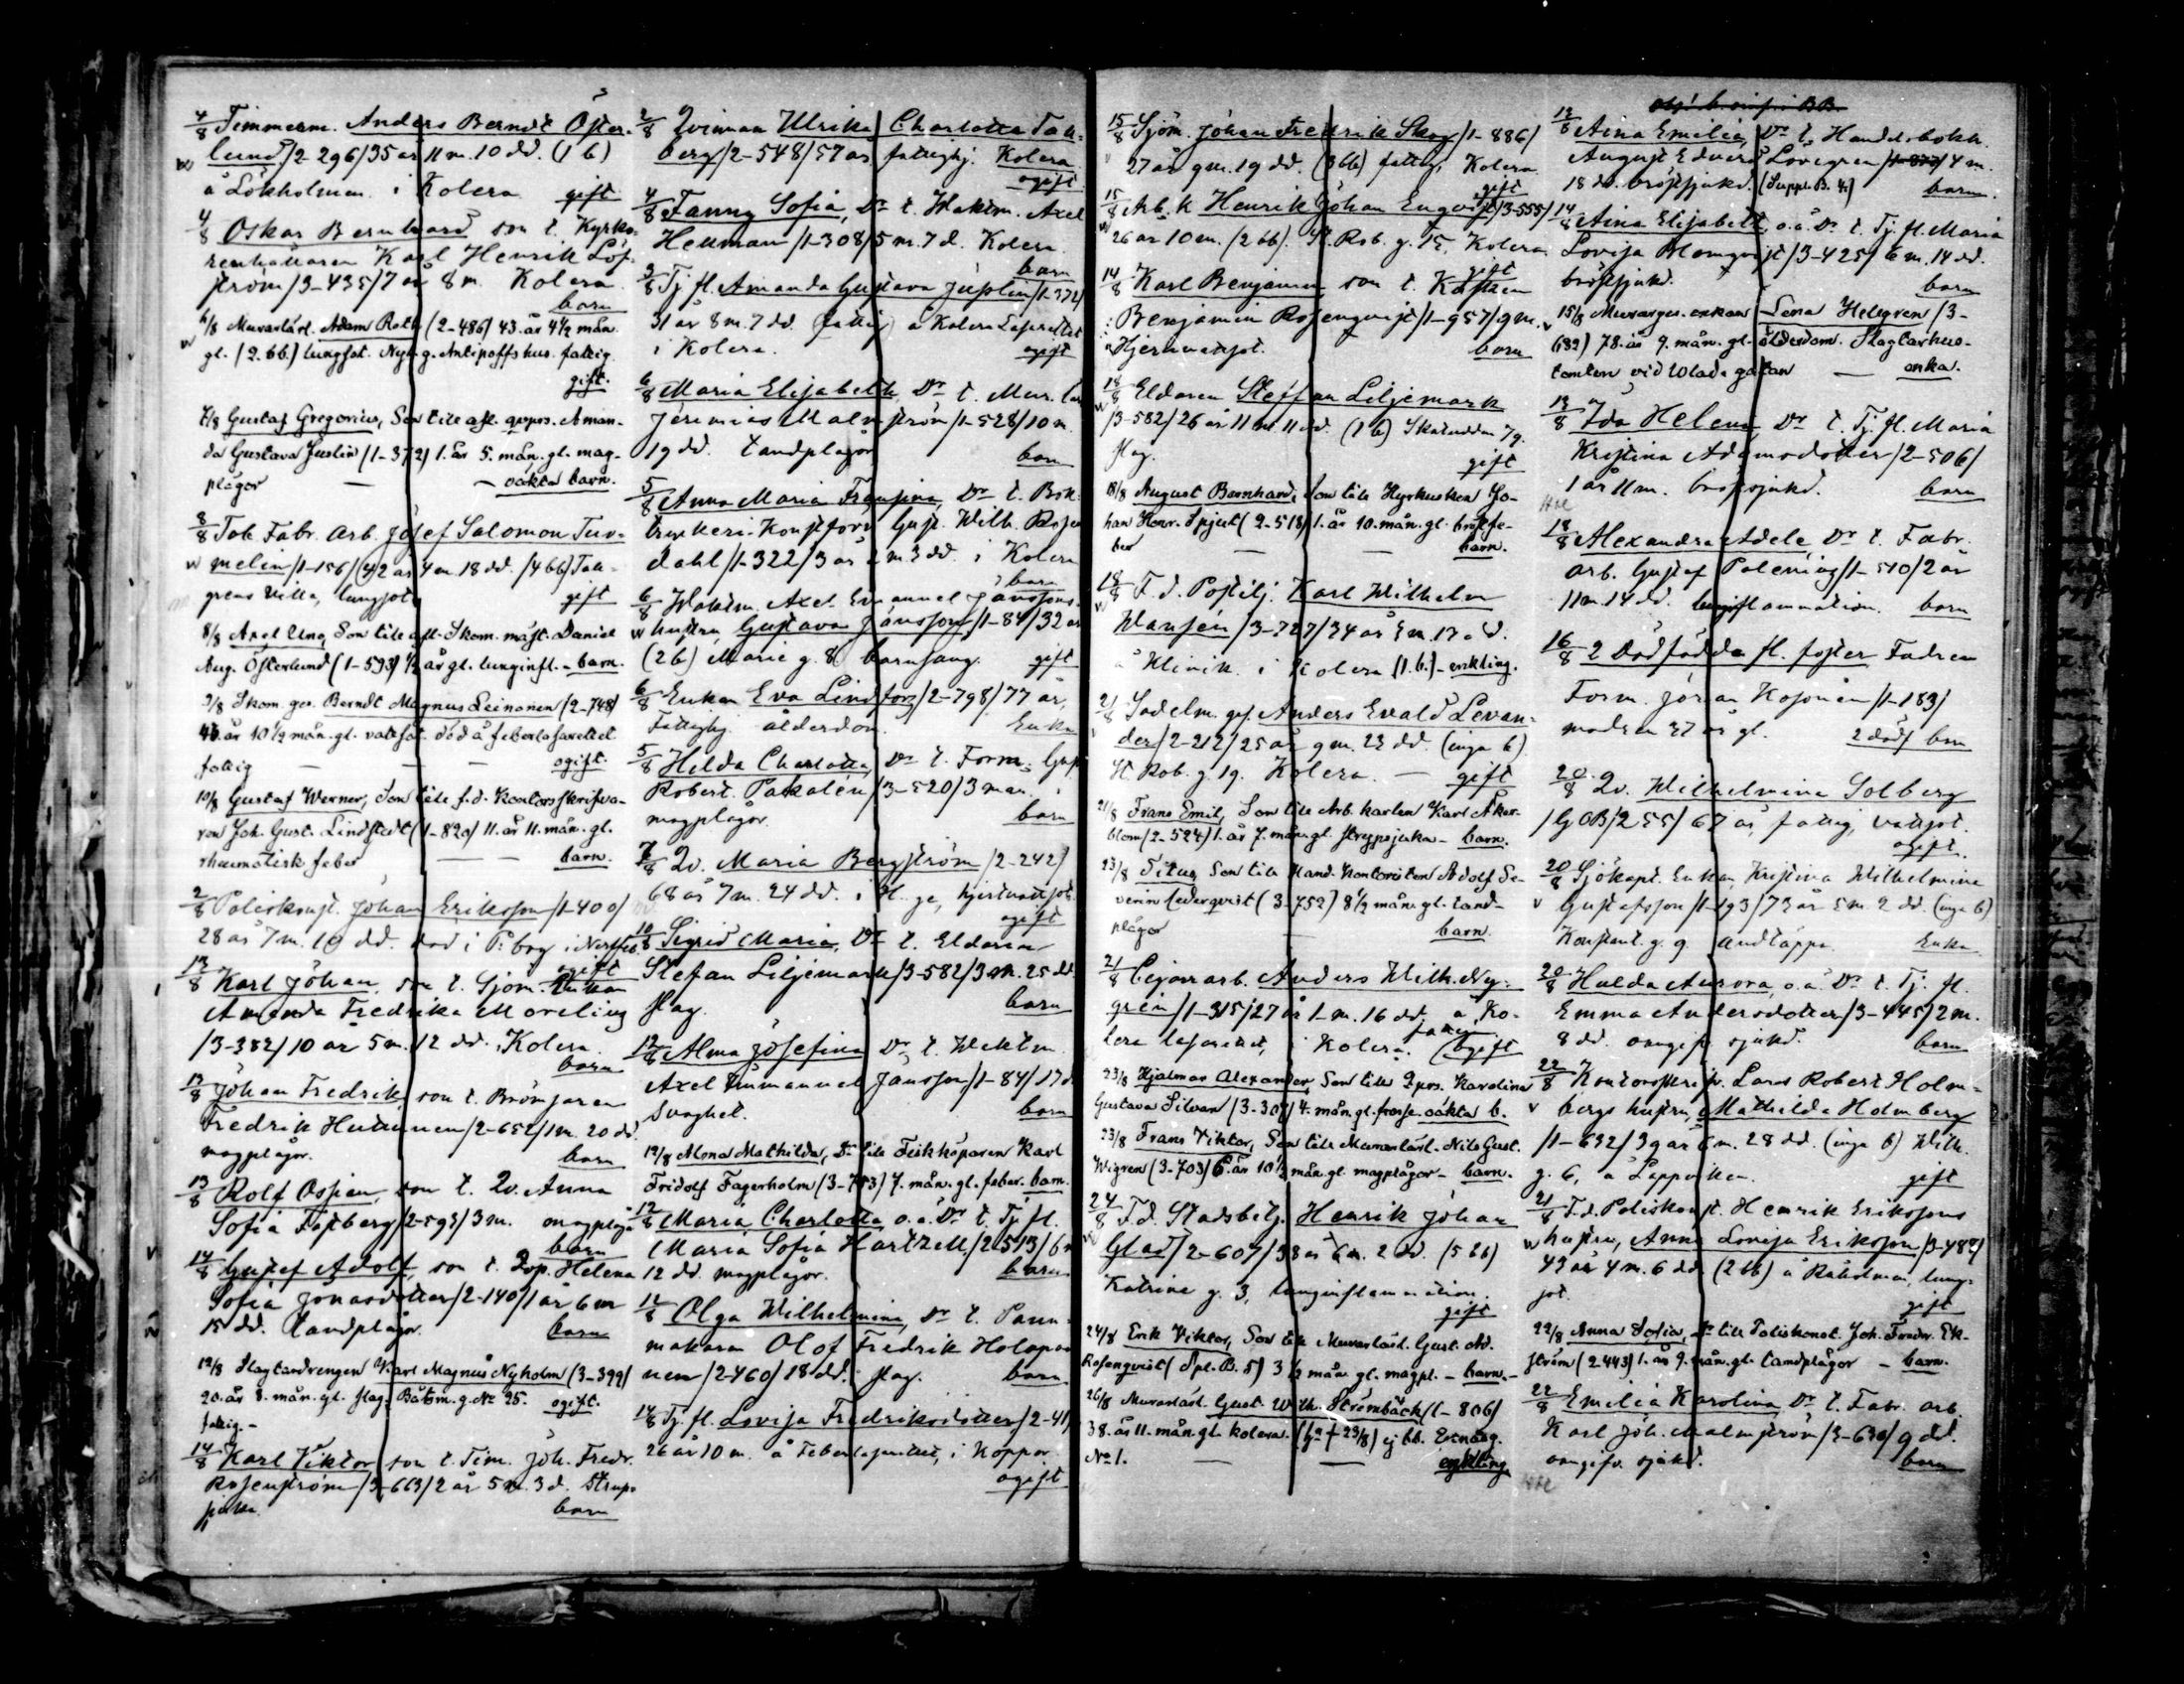 4/8 Timmerm. Anders Berndt Öster-
lund /2-296/ 35 år 11 m. 10 dd. (1 b)
å Lökholmen i Kolera gift
4/8 Oskar Bernhard son t. Kyrko-
Karl Henrik Löf-
ström /3-435/ 7 år 8 m. Kolera
barn
6/8 Murarlärl. Adam Roth (2-486) 43. år 4½ mån.
gl. (2. bb.) lungsot. Nyl. g. Antipoffs hus. fattig.
gift.
7/8 Gustaf Gregorius, Son till afl. qvprs. Aman-
da Gustava Juslin (1-372) 1. år 5. mån. gl. mag-
plågor — — oäkta barn.
8/8 Tob. Fabr. Arb. Josef Salomon Tur-
melin /1-156/ 42 år 4 m. 18 dd. /4 bb/ Tall-
grens Villa, lungsot gift
8/8 Axel Uno, Son till afl. Skom. mäst. Daniel
Aug. Österlund (1-593) ½ år gl. lunginfl. - barn.
9/8 Skom. ges. Berndt Magnus Leinonen (2-748)
år 10½ mån. gl. vattsot. död å feberlasarettet
fattig — — — ogift.
10/8 Gustaf Werner, Son till f.d. Kontorsskrifva-
ren Joh. Gust. Lindstedt (1-820) 11. år 11. mån. gl.
rheumatisk feber — — barn.
2/8 Poliskonst. Johan Eriksson /1-400/
28 år 7 m. 10 dd. död i P:borg i
ogift
13/8 Karl Johan, son t. Sjöm. Enkan
Amanda Fredrika Moreling
/3-382/ 10 år 5 m. 12 dd. Kolera.
barn
13/8 Johan Fredrik, son t. Brömsaren
Fredrik Huttunen /2-652/ 1 m. 20 dd.
magplågor. barn
13/8 Rolf Ossian, son t. Qv. Anna
Sofia Fastberg /2-593/ 3 m. magplåg.
barn
14/8 Gustaf Adolf, son t. Qvp. Helena
Sofia Jonasdotter /2-140/ 1 år 6 m
15 dd. Tandplågor. barn
12/8 Slagtardrengen Karl Magnus Nyholm (3-399)
20. år 8. mån. gl. slag. Båtsm. g. No 25. ogift.
fattig. -
14/8 Karl Viktor, son t. Tim. Joh. Fredr.
Rosenström /3-663/ 2 år 5 m. 3 d. Stryp-
sjuka. barn
2/8 Qvinnan Ulrika Charlotta Tall-
berg /2-548/ 57 år fattighj. Kolera
ogift
4/8 Fanny Sofia, Dr t. Waktm. Axel
Hellman /1-308/ 5 m. 7 d. Kolera
barn
3/8 Tj. fl. Amanda Gustava Juslin /1-372/
31 år 8 m. 7 dd. (fattig) å Kolera Lasarettet
i Kolera. ogift
6/8 Maria Elisabeth, Dr t. Mur. lär
Jeremias Malmström /1-528/ 10 m.
19 dd. tandplågor barn
5/8 Anna Maria Fransina, Dr t. Bok-
tryckeri-Konstförv. Gust. Wilh. Rosen-
dahl /1-322/ 3 år 2 m. 3 dd. i Kolera
barn
6/8 Waktm. Axel Emanuel Janssons
hustru, Gustava Jansson, /1-84/ 32 år
(2 b) Marie g. 8. barnsäng. gift
6/8 Enkan Eva Lindfors /2-798/ 77 år,
Fattighj. ålderdom. Enka
5/8 Hilda Charlotta, Dr t. Form. Gust
Robert Pakalén /3-520/ 3 mån.
magplågor. barn
7/8 Qv. Maria Bergström /2-242/
68 år 7 m. 24 dd. i hjertvattsot
ogift
10/8 Sigrid Maria, Dr t. Eldaren
Stefan Liljemark /3-582/ 3 m. 25 dd.
slag. barn
12/8 Alma Josefina Dr t. Waktm.
Axel Emmanuel Jansson /1-84/ 17 d
Svaghet. barn
12/8 Alma Mathilda, Dr till Fiskköparen Karl
Fridolf Fagerholm (3-783) 7. mån. gl. feber. barn.
12/8 Maria Charlotta, o.ä. Dr t. Tj. fl.
Maria Sofia Hartzell /2-513/ 6 m
12 dd. magplågor. barn
11/8 Olga Wilhelmina, Dr t. Pann-
makaren Olof Fredrik Holopai-
nen /2-460/ 18 dd. slag. barn
14/8 Tj. fl. Lovisa Fredriksdotter /2-41/
26 år 10 m. å Feberlasarettet, i Koppor.
ogift
15/8 Sjöm. Johan Fredrik Skog /1-886/
27 år 9 m. 19 dd. (3 bb) fattig, Kolera
gift
15/8 Arb. k. Henrik Johan Engvist /3-555/
26 år 10 m. (2 bb). St. Rob. g. 15, Kolera
gift
14/8 Karl Benjamin, son t. Kusken
Benjamin Rosenqvist /1-957/ 9 m.
Hjernvattsot. barn
18/8 Eldaren Steffan Liljemark
/3-582/ 26 år 11 m 11 dd. (1 b) Skatudden 79.
slag. gift
18/8 August Bernhard, Son till Hyrkusken Jo-
han Henr. Spjut (2-518) 1. år 10. mån. gl. bröstfe-
ber — — barn.
18/8 F. d. Postilj. Karl Wilhelm
Wansén /3-727/ 34 år m. 13 dd.
å Klinik. i Kolera (1. b.) - enkling.
21/8 Sadelm. ges. Anders Evald Levan-
der /2-212/ 25 år 9 m. 23 dd. (inga b)
St. Rob. g. 19. Kolera. — gift
21/8 Frans Emil, Son till Arb. karlen Karl Åker-
blom (2-524) 1. år 7. mån. gl. strypsjuka - barn.
23/8 Titus, Son till Hand. Kontoristen Adolf Se-
verin Cederqvist (3-752) 8½ mån. gl. tand-
plågor — barn.
21/8 Cigarrarb. Anders Wilh. Ny-
grén /1-315/ 27 år 1 m. 16 dd. å Ko-
lera lasarettet, i Kolera. ogift
23/8 Hjalmar Alexander, Son till Qprs. Karolina
Gustava Silvan (3-307) 4. mån. gl. frossa. oäkta b.
23/8 Frans Viktor, Son till Murarlärl. Nils Gust.
Wigren (3-703) 6. år 10½ mån. gl. magplågor - barn.
24/8 F.d. Stadsbetj. Henrik Johan
Glad /2-607/ 38 år 6 m. 2 dd. (5 bb)
Katrine g. 3, lunginflammation.
gift
24/8 Erik Viktor, Son till Murarlärl. Gust. Ad.
Rosenqvist (Spl. B. 5) 3½ mån. gl. magpl. - barn. -
26/8 Murarlärl. Gust. Wilh. Strömbäck /1-806/
38. år 11. mån. gl. kolera. ej bb.
No 1. — — enkling
12/8 Aina Emilia, Dr t. Handelsbokh.
August Edvard Lövegren 4 m.
18 dd. bröstsjukd. (Suppl. B. 4.) barn
14/8 Aina Elisabeth, o.ä. Dr t. Tj. fl. Maria
Lovisa Blomqvist /3-425/ 6 m. 14 dd.
bröstsjukd. barn
15/8 Murarges. enkan Lena Helegren /3-
682) 78. år 9. mån. gl. ålderdom. Slagtarhus-
tomten vid Wladi gatan — enka.
13/8 Ida Helena, Dr t. Tj. fl. Maria
Kristina Adamsdotter /2-506/
1 år 11 m. bröstsjukd. barn
18/8 Alexandra Adele Dr t. Fabr.
arb. Gustaf Polening /1-510/ 2 år
11 m. 14 dd. lunginflammation. barn
16/8 2 Dödfödda fl. foster Fadren
Form. Johan Kosonen /1-183/
modren 37 år gl. 2 död barn
20/8 Qv. Wilhelmina Solberg
/GOB/ 255/ 67 år, fattig, vattsot.
ogift.
20/8 Sjökapt. Enkan, Kristina Wilhelmina
Gustafsson /1-193/ 73 år 5 m 2 dd. (inga b)
Konstant. g. 9. andtäppa. Enka
20/8 Hulda Aurora, o.ä. Dr t. Tj. fl.
Emma Andersdotter /3-445/ 2 m.
8 dd. oangifv. sjukd. barn
22/8 Kontorsskrifv. Lars Robert Holm-
bergs hustru, Mathilda Holmberg
/1-632/ 39 år 6 m. 28 dd. (inga b) Wilh.
g. 6, å Lappviken. gift
21/8 F.d. Poliskonst. Henrik Erikssons
hustru, Anna Lovisa Eriksson /3-482/
43 år 4 m. 6 dd. (2 bb) å Råholmen, lung-
sot. gift
22/8 Anna Sofia, Dr till Poliskonst. Joh. Fredr. Ek-
ström (2-443) 1. år 9. mån. gl. tandplågor - barn.
22/8 Emilia Karolina, Dr t. Fabr. arb.
Karl Joh. Malmström /3-630/ 9 dd.
oangifv. sjukd. barn